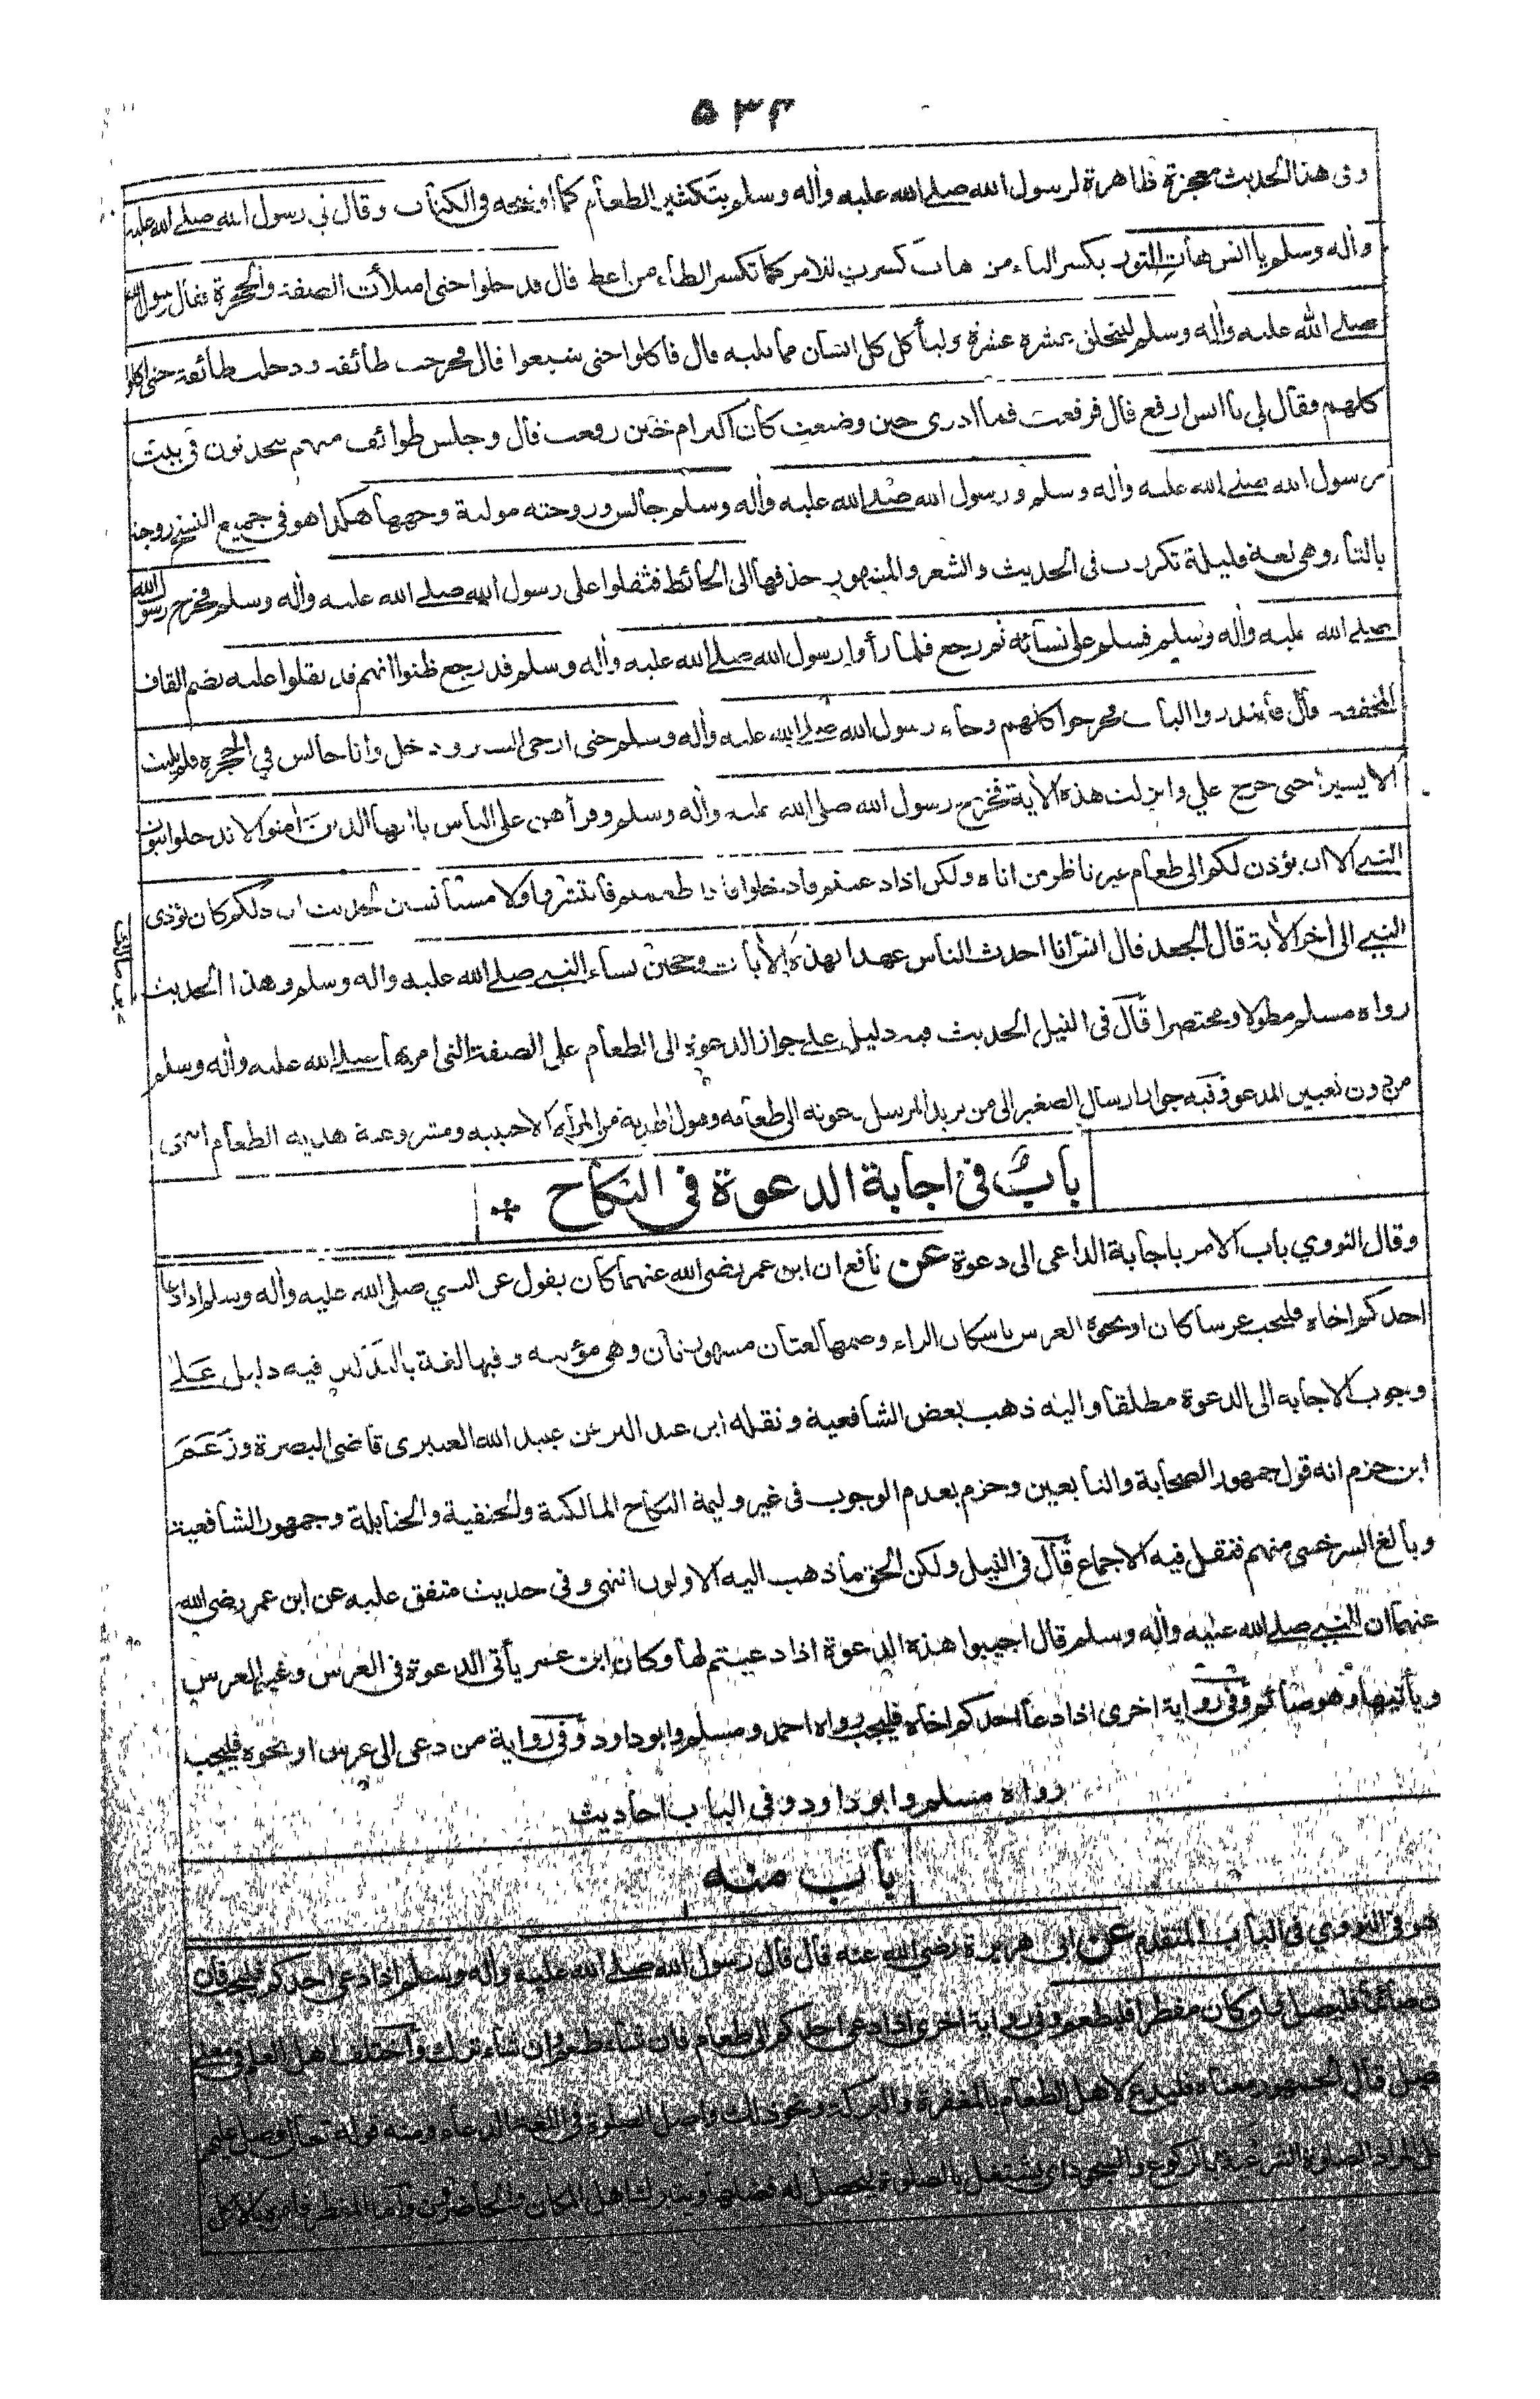 ٥٣٤
وفى هذا الحديث معجزة ظاهرة لرسول الله صلى الله عليه وأله وسلم بتكثير الطعام كما اوضحه فى الكتاب وقال لى رسول الله صلى الله عليه
وأله وسلم يا انس هات التور بكسر التاء من هات كسرت للامر كما تكسر الطاء من اعط قال فدخلوا حتى امتلأت الصفة والحجرة فقال رسول الله
صلى الله عليه وأله وسلم ليتحلق عشرة عشرة وليأكل كل انسان مما يليه قال فاكلوا حتى شبعوا قال فخرجت طائفة ودخلت طائفة حتى اكلوا
كلهم فقال لى يا انس ارفع قال فرفعت فما ادرى حين وضعت كان اكثر ام حين رفعت قال وجلس طوائف منهم يتحدثون فى بيت
رسول الله صلى الله عليه وأله وسلم ورسول الله صلى الله عليه وأله وسلم جالس وزوجته مولية وجهها هكذا هو فى جميع النسخ زوجته
بالتاء وهى لغة قليلة تكررت فى الحديث والشعر والمشهور حذفها الى الحائط فثقلوا على رسول الله صلى الله عليه وأله وسلم فخرج رسول الله
صلى الله عليه وأله وسلم فسلم على نسائه ثم رجع فلما رأوا رسول الله صلى الله عليه وأله وسلم قد رجع ظنوا انهم قد ثقلوا عليه بضم القاف
المخففة قال فابتدروا الباب فخرجوا كلهم وجاء رسول الله صلى الله عليه وأله وسلم حتى ارخى الستر ودخل وانا جالس فى الحجرة فلم يلبث
الا يسيرا حتى خرج علي وانزلت هذه الأية فخرج رسول الله صلى الله عليه وأله وسلم وقرأهن على الناس يا ايها الذين امنوا لا تدخلوا بيوت
النبى الا ان يؤذن لكم الى طعام غير ناظرين اناه ولكن اذا دعيتم فادخلوا فاذا طعمتم فانتشروا ولا مستأنسين لحديث ان ذلكم كان يؤذى
النبى الى أخر الأية قال الجعد قال انس انا احدث الناس عهدا بهذه الأيات وحجبن نساء النبى صلى الله عليه وأله وسلم وهذا الحديث
رواه مسلم مطولا ومختصرا قال فى النيل الحديث فيه دليل على جواز الدعوة الى الطعام على الصفة التى امر بها صلى الله عليه وأله وسلم
من دون تعيين المدعو وفيه جواز ارسال الصغير الى من يريد المرسل دعوته الى طعامه وقبول الهدية من المرأة الاجنبية ومشروعية هدية الطعام انتهى
باب فى اجابة الدعوة فى النكاح
وقال النووي باب الامر باجابة الداعى الى دعوة عن نافع ان ابن عمر رضى الله عنهما كان يقول عن النبي صلى الله عليه وأله وسلم اذا دعا
احدكم اخاه فليجب عرسا كان او نحوه العرس باسكان الراء وضمها لغتان مشهورتان وهى مؤنثة وفيها لغة بالتذكير فيه دليل على
وجوب الاجابة الى الدعوة مطلقا واليه ذهب بعض الشافعية ونقله ابن عبد البر عن عبيد الله العنبرى قاضى البصرة وزعم
ابن حزم انه قول جمهور الصحابة والتابعين وجزم بعدم الوجوب فى غير وليمة النكاح المالكية والحنفية والحنابلة وجمهور الشافعية
وبالغ السرخسى منهم فنقل فيه الاجماع قال فى النيل ولكن الحق ما ذهب اليه الاولون انتهى وفى حديث متفق عليه عن ابن عمر رضى الله
عنهما ان النبى صلى الله عليه وأله وسلم قال اجيبوا هذه الدعوة اذا دعيتم لها وكان ابن عمر يأتى الدعوة فى العرس وغير العرس
ويأتيها وهو صائم وفى رواية اخرى اذا دعا احدكم اخاه فليجب رواه احمد ومسلم وابو داود وفى رواية من دعى الى عرس او نحوه فليجب
رواه مسلم وابو داود وفى الباب احاديث
باب منه
هو فى النووي فى الباب المتقدم عن ابى هريرة رضى الله عنه قال قال رسول الله صلى الله عليه وأله وسلم اذا دعى احدكم فليجب فان
ن صائما فليصل وان كان مفطرا فليطعم وفى رواية اخرى اذا دعى احدكم الى طعام فان شاء طعم وان شاء ترك واختلف اهل العلم فى معنى
فليصل قال الجمهور معناه فليدع لاهل الطعام بالمغفرة والبركة ونحو ذلك واصل الصلوة فى اللغة الدعاء ومنه قوله تعالى وصل عليهم
المراد الصلوة الشرعية بالركوع والسجود اى يشتغل بالصلوة ليحصل له فضلها ويتبرك اهل المكان والحاضرون واما المفطر فامره بالاكل